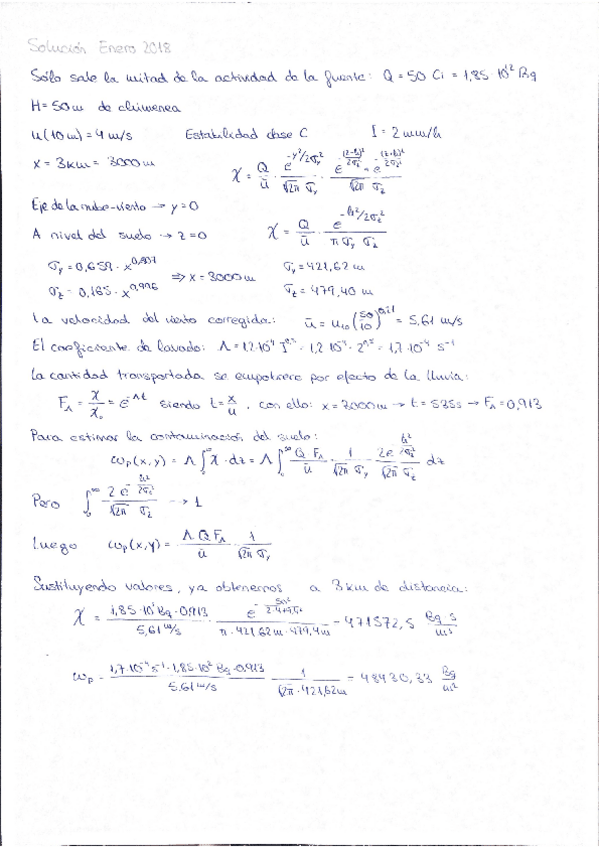 Solución Enero 2018
Sólo sale la mitad de la actividad de la fuente: Q = 50 Ci = 1,85·10¹² Bq
H = 50 m de chimenea
u(10 m) = 4 m/s Estabilidad clase C I = 2 mm/h
x = 3 km = 3000 m χ = Q/ū · e^(-y²/2σy²)/(√2π σy) ·
Eje de la nube-viento → y = 0
A nivel del suelo → z = 0 χ = Q/ū · e^(-h²/2σz²)/(π σy σz)
σy = 0,659 · x^0,807 ⇒ x = 3000 m σy = 421,62 m
σz = 0,165 · x^0,996 σz = 479,40 m
La velocidad del viento corregida: ū = u₁₀ (50/10)^0,21 = 5,61 m/s
El coeficiente de lavado: Λ = 1,2·10⁻⁴ I^0,5 = 1,2·10⁻⁴ · 2^0,5 = 1,7·10⁻⁴ s⁻¹
La cantidad transportada se empobrece por efecto de la lluvia:
F_Λ = χ/χ₀ = e^(-Λt) siendo t = x/ū, con ello: x = 3000 m → t = 535 s → F_Λ = 0,913
Para estimar la contaminación del suelo:
ωp(x,y) = Λ ∫₀^∞ χ · dz = Λ ∫₀^∞ Q F_Λ/ū · 1/(√2π σy) · 2e^(-h²/2σz²)/(√2π σz) dz
Pero ∫₀^∞ 2 e^(-h²/2σz²)/(√2π σz) → 1
Luego ωp(x,y) = Λ Q F_Λ/ū · 1/(√2π σy)
Sustituyendo valores, ya obtenemos a 3 km de distancia:
χ = 1,85·10¹² Bq · 0,913/5,61 m/s · /(π · 421,62 m · 479,4 m) = 471572,5 Bq s/m³
ωp = 1,7·10⁻⁴ s⁻¹ · 1,85·10¹² Bq · 0,913/5,61 m/s · 1/(√2π · 421,62 m) = 48430,33 Bq/m²